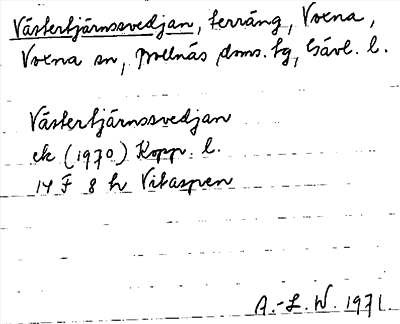 Västertjärnssvedjan, terräng, Voxna,
Voxna sn, Bollnäs doms. tg, Gävl. l.
Västertjärnssvedjan
ek (1970) Kopp. l.
14 F 8 h Vitaspen
A.-L. W. 1971.